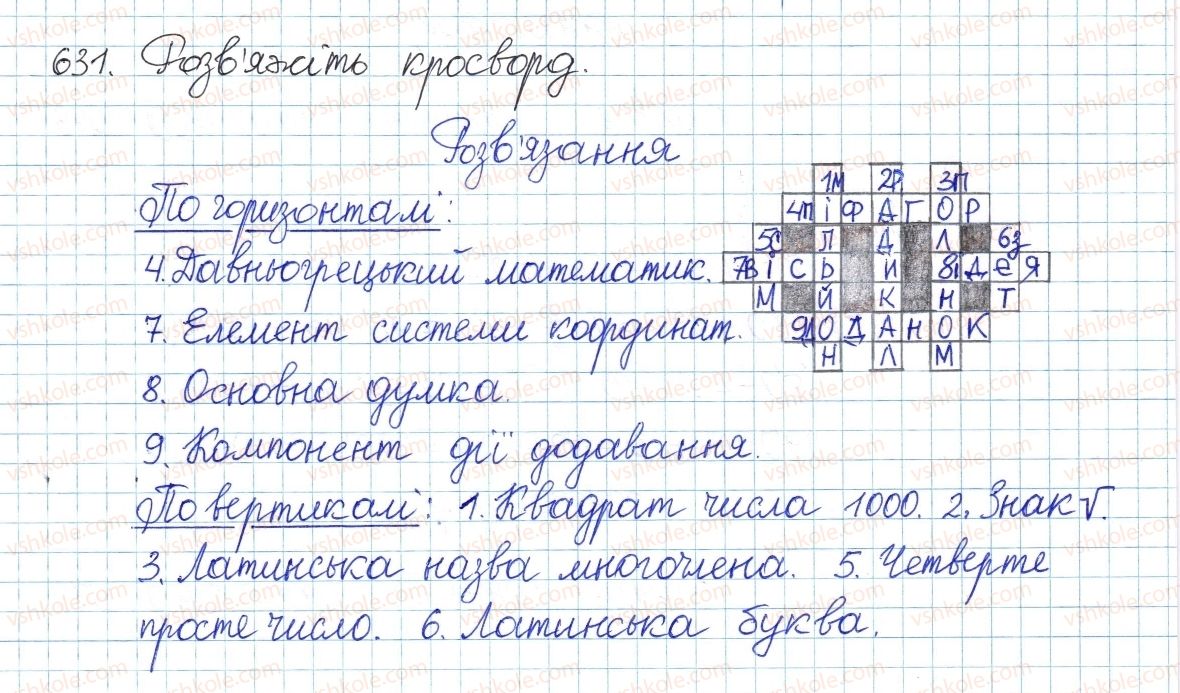 631. Розв'яжіть кросворд.
Розв'язання
По горизонталі:
4. Давньогрецький математик.
7. Елемент системи координат.
8. Основна думка.
9. Компонент дії додавання.
По вертикалі: 1. Квадрат числа 1000. 2. Знак √.
3. Латинська назва многочлена. 5. Четверте
просте число. 6. Латинська буква.
1М 2Р 3П
4П І Ф А Г О Р
5С Л Д Л 6З
7В І С Ь И 8І Д Е Я
М Й К Н Т
9Д О Д А Н О К
Н Л М
vshkole.com